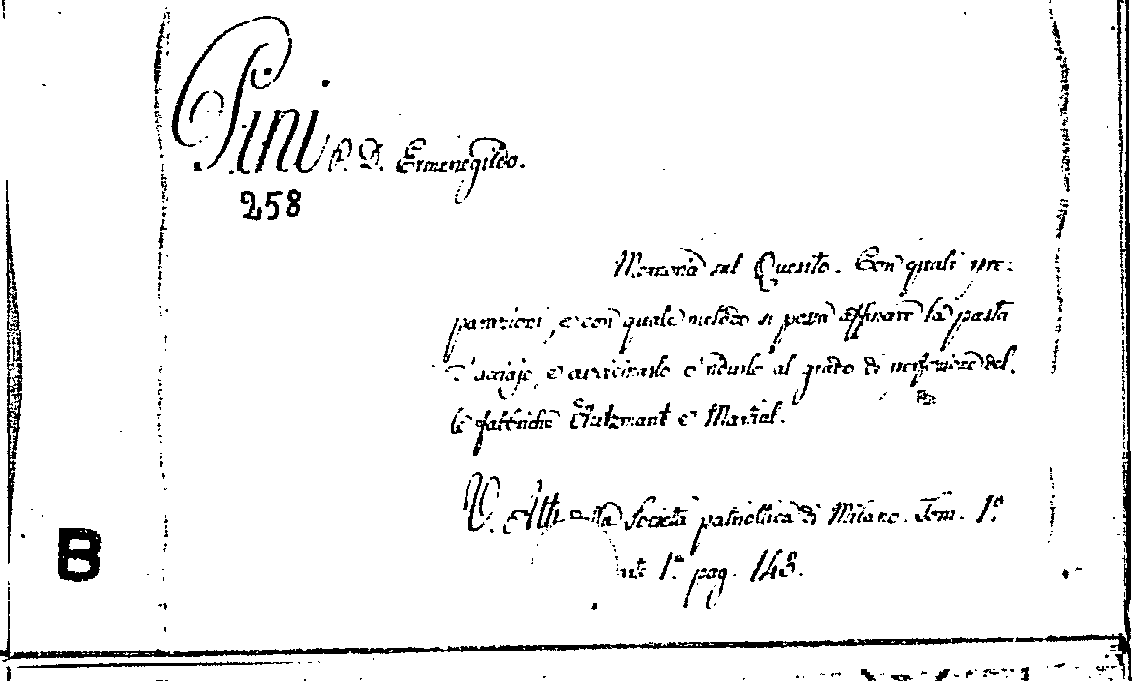 Pini P. D. Ermenegildo.
258
Memoria sul Quesito. Con quali pre-
parazioni, e con quale metodo si possa affinare la pasta
d'acciajo, e avvicinarlo e ridurlo al grado di perfezione del-
le fabbriche e Martial.
V. Atti della Società patriottica di Milano. Tom. 1.º
1.ª pag. 143.
B